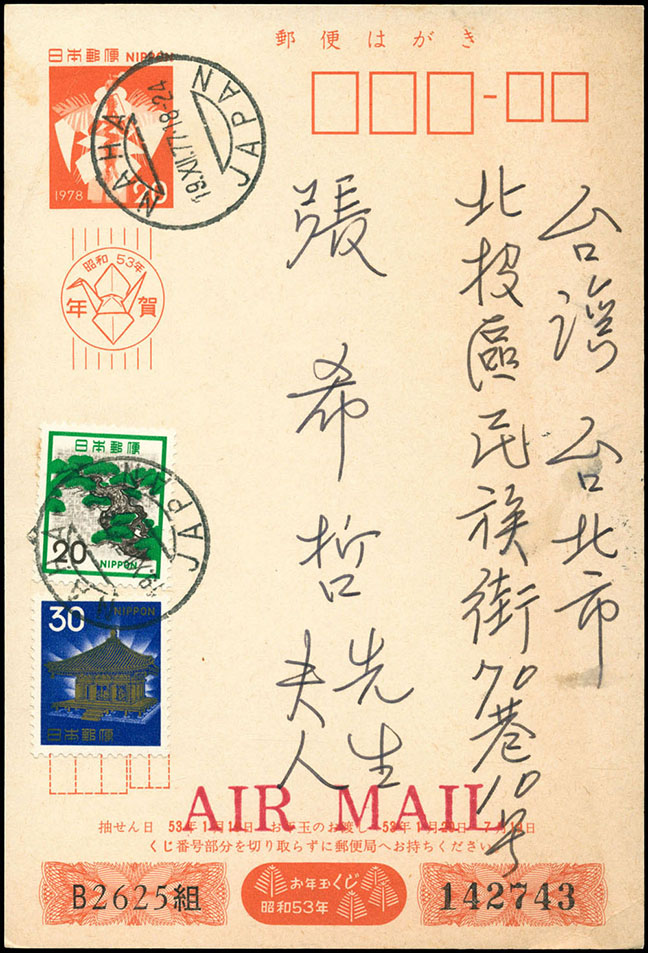 郵便はがき
日本郵便 NIPPON
1978
20
NAHA
19.XII.77.18-24
JAPAN
昭和53年
年賀
台湾 台北市
北投區民族街70巷10号
張希哲先生
夫人
日本郵便
20
NIPPON
JAPAN
30
NIPPON
日本郵便
AIR MAIL
抽せん日 53年1月15日 お年玉のお渡し 53年1月20日-7月19日
くじ番号部分を切り取らずに郵便局へお持ちください
B2625組
お年玉くじ
昭和53年
142743